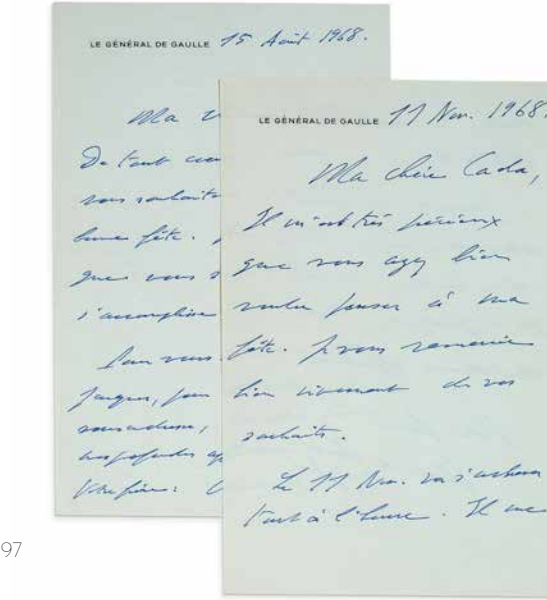 LE GÉNÉRAL DE GAULLE 15 Août 1968.
Ma
De tout
vous souhaite
bonne fête.
que vous
s'accomplisse
Pour vous.
Jacques, pour
profondes
Votre frère:
LE GÉNÉRAL DE GAULLE 11 Nov. 1968.
Ma chère Cada,
Il m'est très précieux
que vous ayez bien
voulu penser à ma
fête. Je vous remercie
bien vivement de vos
souhaits.
Le 11 Nov. va s'achever
tout à l'heure. Il me
97